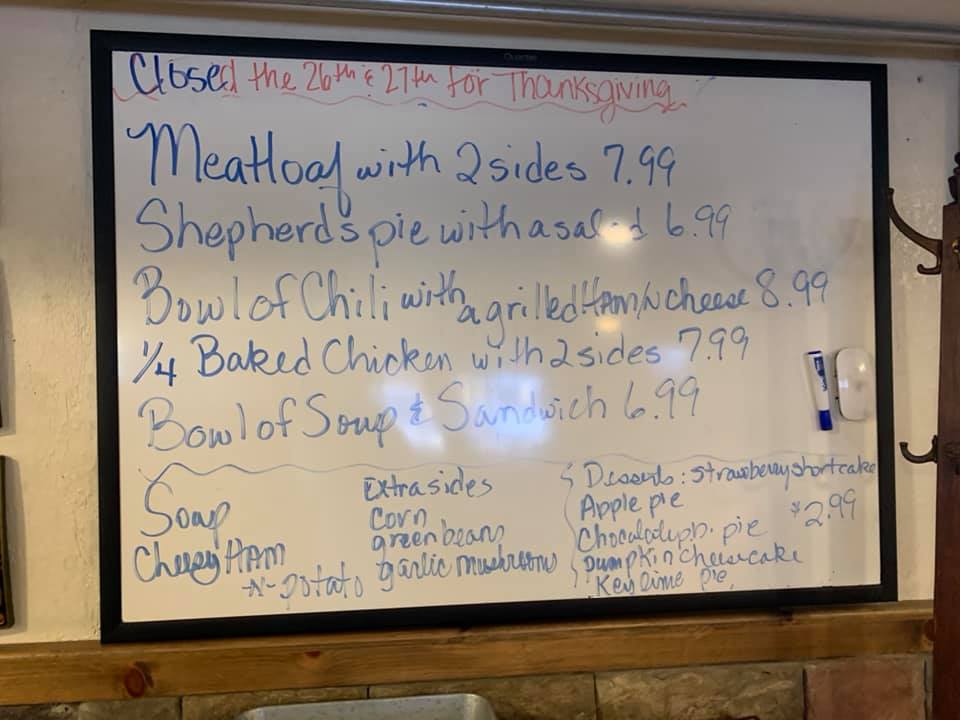 Closed the 26th & 27th for Thanksgiving
Meatloaf with 2 sides 7.99
Shepherd's pie with a salad 6.99
Bowl of Chili with a grilled HAM N cheese 8.99
1/4 Baked Chicken with 2 sides 7.99
Bowl of Soup & Sandwich 6.99
Soup
Cheesy HAM
-N- potato
Extra sides
corn
green beans
garlic mushrooms
Desserts: strawberry shortcake
Apple pie
$2.99
Chocolate p.b. pie
Pumpkin cheesecake
Key Lime pie